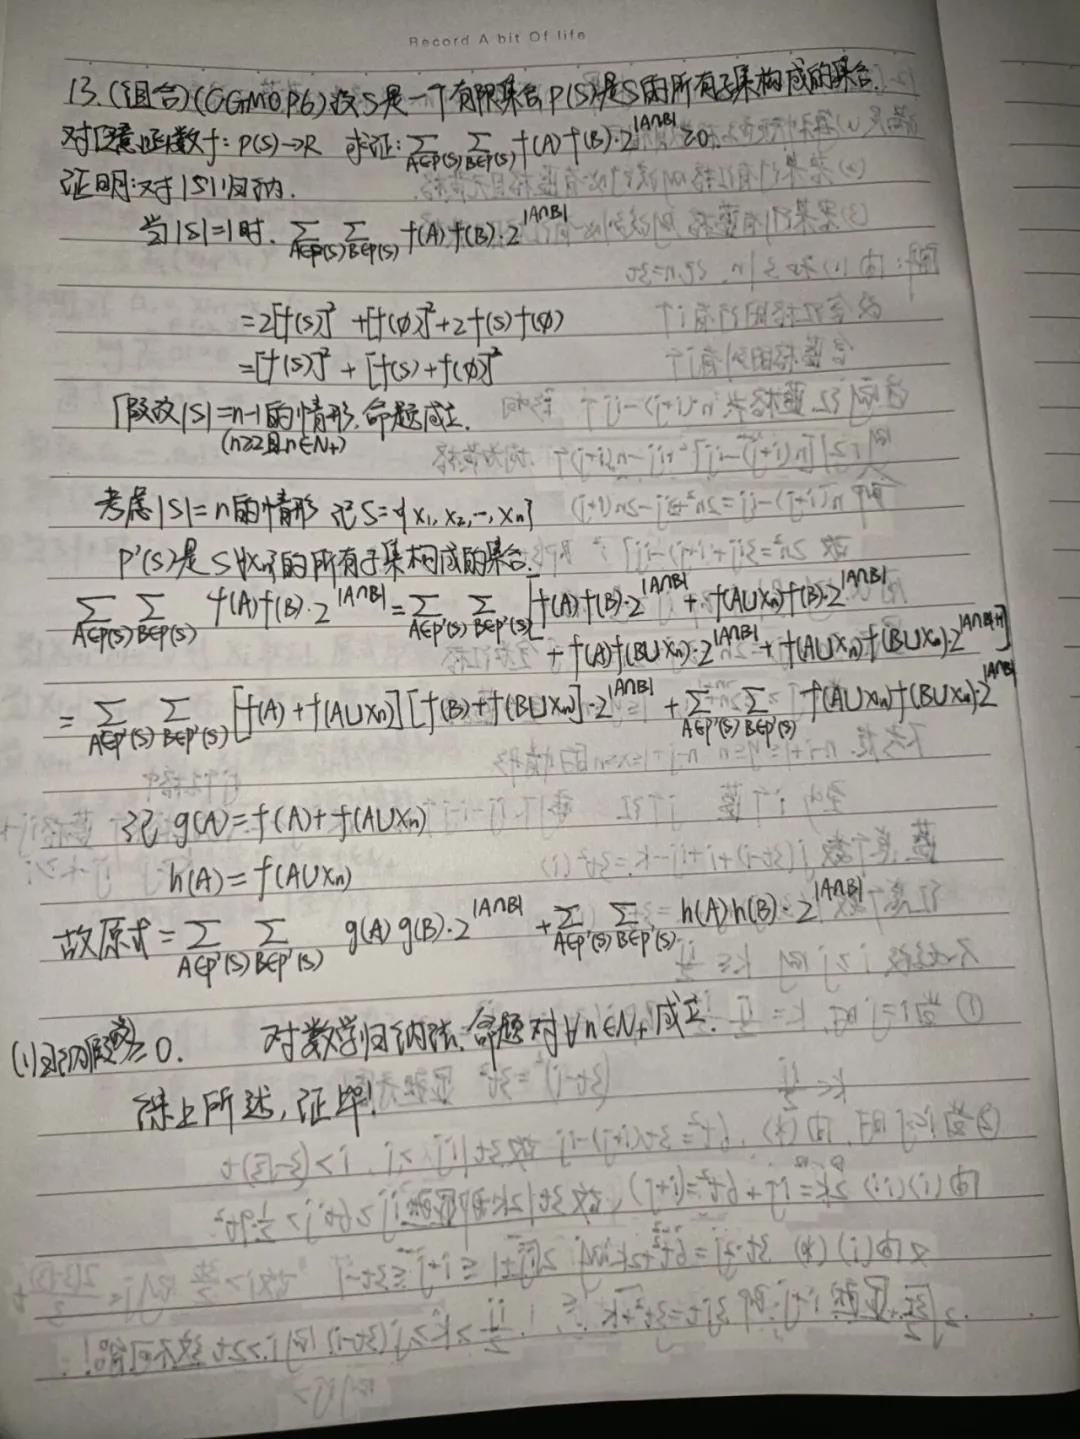 Record A bit Of life
13.(组合)(CGMO P6)设S是一个有限集合,P(S)是S的所有子集构成的集合.
对任意函数f: P(S)→R 求证: ∑_{A∈P(S)} ∑_{B∈P(S)} f(A)f(B)·2^{|A∩B|} ≥0.
证明:对|S|归纳.
当|S|=1时. ∑_{A∈P(S)} ∑_{B∈P(S)} f(A)f(B)·2^{|A∩B|}
=2[f(S)]²+[f(∅)]²+2f(S)f(∅)
=[f(S)]²+[f(S)+f(∅)]²
假设|S|=n-1的情形,命题成立.
(n≥2且n∈N₊)
考虑|S|=n的情形 记S={x₁,x₂,…,xₙ}
P'(S)是S\{xₙ}的所有子集构成的集合.
∑_{A∈P(S)} ∑_{B∈P(S)} f(A)f(B)·2^{|A∩B|}=∑_{A∈P'(S)} ∑_{B∈P'(S)} [f(A)f(B)·2^{|A∩B|}+f(A∪xₙ)f(B)·2^{|A∩B|}
+f(A)f(B∪xₙ)·2^{|A∩B|}+f(A∪xₙ)f(B∪xₙ)·2^{|A∩B|+1}]
=∑_{A∈P'(S)} ∑_{B∈P'(S)} [f(A)+f(A∪xₙ)][f(B)+f(B∪xₙ)]·2^{|A∩B|}+∑_{A∈P'(S)} ∑_{B∈P'(S)} f(A∪xₙ)f(B∪xₙ)·2^{|A∩B|}
记 g(A)=f(A)+f(A∪xₙ)
h(A)=f(A∪xₙ)
故原式=∑_{A∈P'(S)} ∑_{B∈P'(S)} g(A)g(B)·2^{|A∩B|}+∑_{A∈P'(S)} ∑_{B∈P'(S)} h(A)h(B)·2^{|A∩B|}
(归纳假设)≥0. 对数学归纳法,命题对∀n∈N₊成立.
综上所述,证毕!